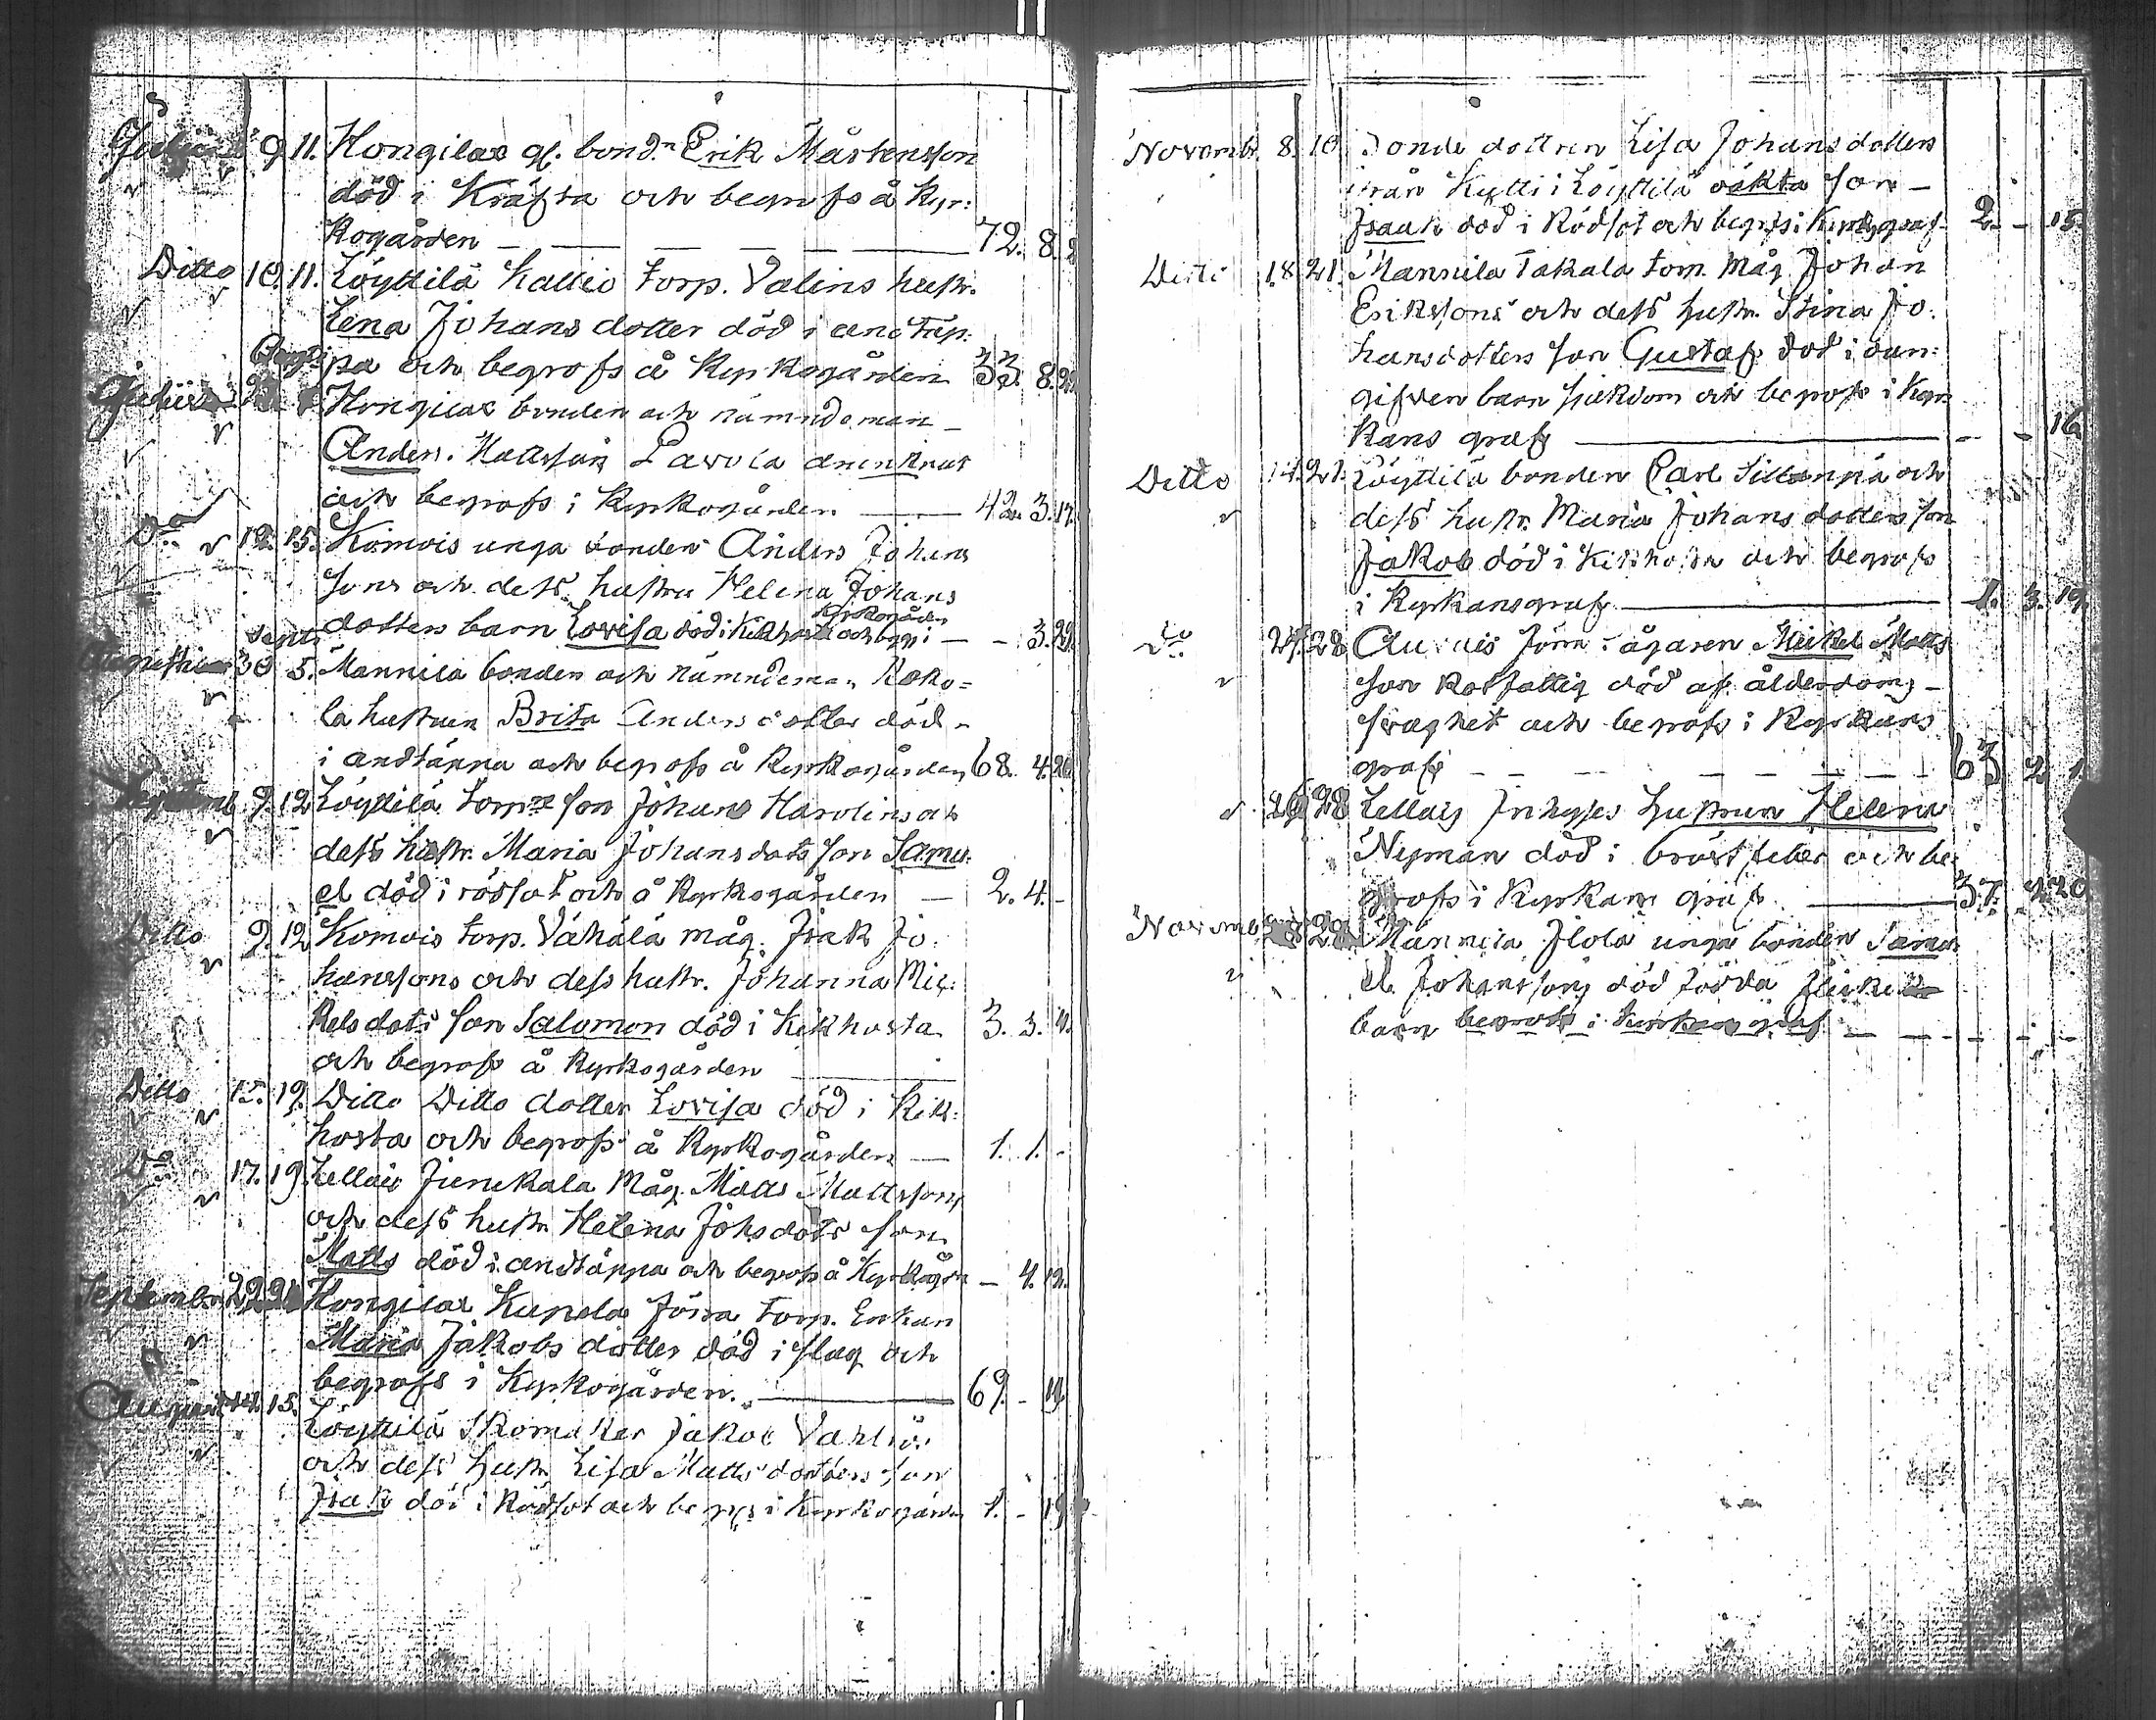 Julii 9 11. Kongilax gl. bond.n Erik Mårtensson
död i Kräfta och begrofs å Kyr:
kogården — — — — — 72. 8. 2
Ditto 10. 11. Löyttilä Kallio torp. Valins hustr.
Lena Johans dotter död i andtäp:
pa och begrofs å Kyrkogården 33. 8.
Julii Kongilax bonden och nämndeman
Anders Mattsson Pavola
och begrofs i Kyrkogården — 42. 3. 17.
Do 12. 15. Komois unga bonden Anders Johans
sons och dess hustru Helena Johans
Kyrkogården
dotters barn Lovisa död i Kikhosta och begr. i — - 3. 29.
Sept.
30 5. Mannila bonden och nämndeman Koko=
la hustrun Brita Anders dotter död
i andtäppa och begrofs å Kyrkogården 68. 4. 26
Septemb 9. 12 Löyttilä son Johans Harolins och
dess hustr. Maria Johansdots son Samu:
el död i rödsot och å Kyrkogården — 2. 4. -
Ditto 9. 12 Komois torp. Vähälä måg. Isak Jo:
hanssons och dess hustr. Johanna Mic:
kels dots son Salomon död i Kikhosta 3. 3. 4.
och begrofs å Kyrkogården —
Ditto 15. 19. Ditto Ditto dotter Lovisa död i Kik:
hosta och begrofs å Kyrkogården — 1. 1. -
Do 17. 19. Lellais Junkala Måg. Matts Mattssons
och dess hustr Helena Johsdots son
Matts död i andtäppa och begrofs å — 4. 12.
September 22 Kongilax Kupola Jörra torp. Enkan
Maria Jakobs dotter död i slag och
begrofs i Kyrkogården. — 69. - 14.
August 14. 15.
Löyttilä Skomaker Jakob
och dess hustr Lisa Matts dotters son
Isak död i Rödsot och begrs i Kyrkogården 1. - 19
Novembr. 8. 10 Bonde dottren Lisa Johans dotters
från Kytti i Löyttilä oäkta son —
Isaak död i Rödsot och begrfs i 2. - 15.
Ditto 18. 21. Mannila Takala torp. Måg Johan
Erikssons och dess hustr. Stina Jo:
hansdotters son Gustaf död i oan:
gifven barn sjukdom och begrofs i Kyr
kans graf — - - 16
Ditto 14. 21. Löyttilä bonden Carl Sillanpä och
dess hustr. Maria Johans dotters son
Jakob död i Kikhosta och begrofs
i Kyrkansgraf — 1. 3. 19.
Do 24. 28 ägaren Mickel Matts
son död af ålderdoms-
svaghet och begrofs i Kyrkans
graf — — — — 63 2. 1.
26 28 Lellais Inhyses hustrun Helena
Nyman död i bröstfeber och be
grofs i Kyrkans graf — 37. 2. 20
Novemb 28 Mannila Ilola unga bonden Samu
el Johanssons död födda flicke
barn begrofs i Kyrkans graf — — - - -